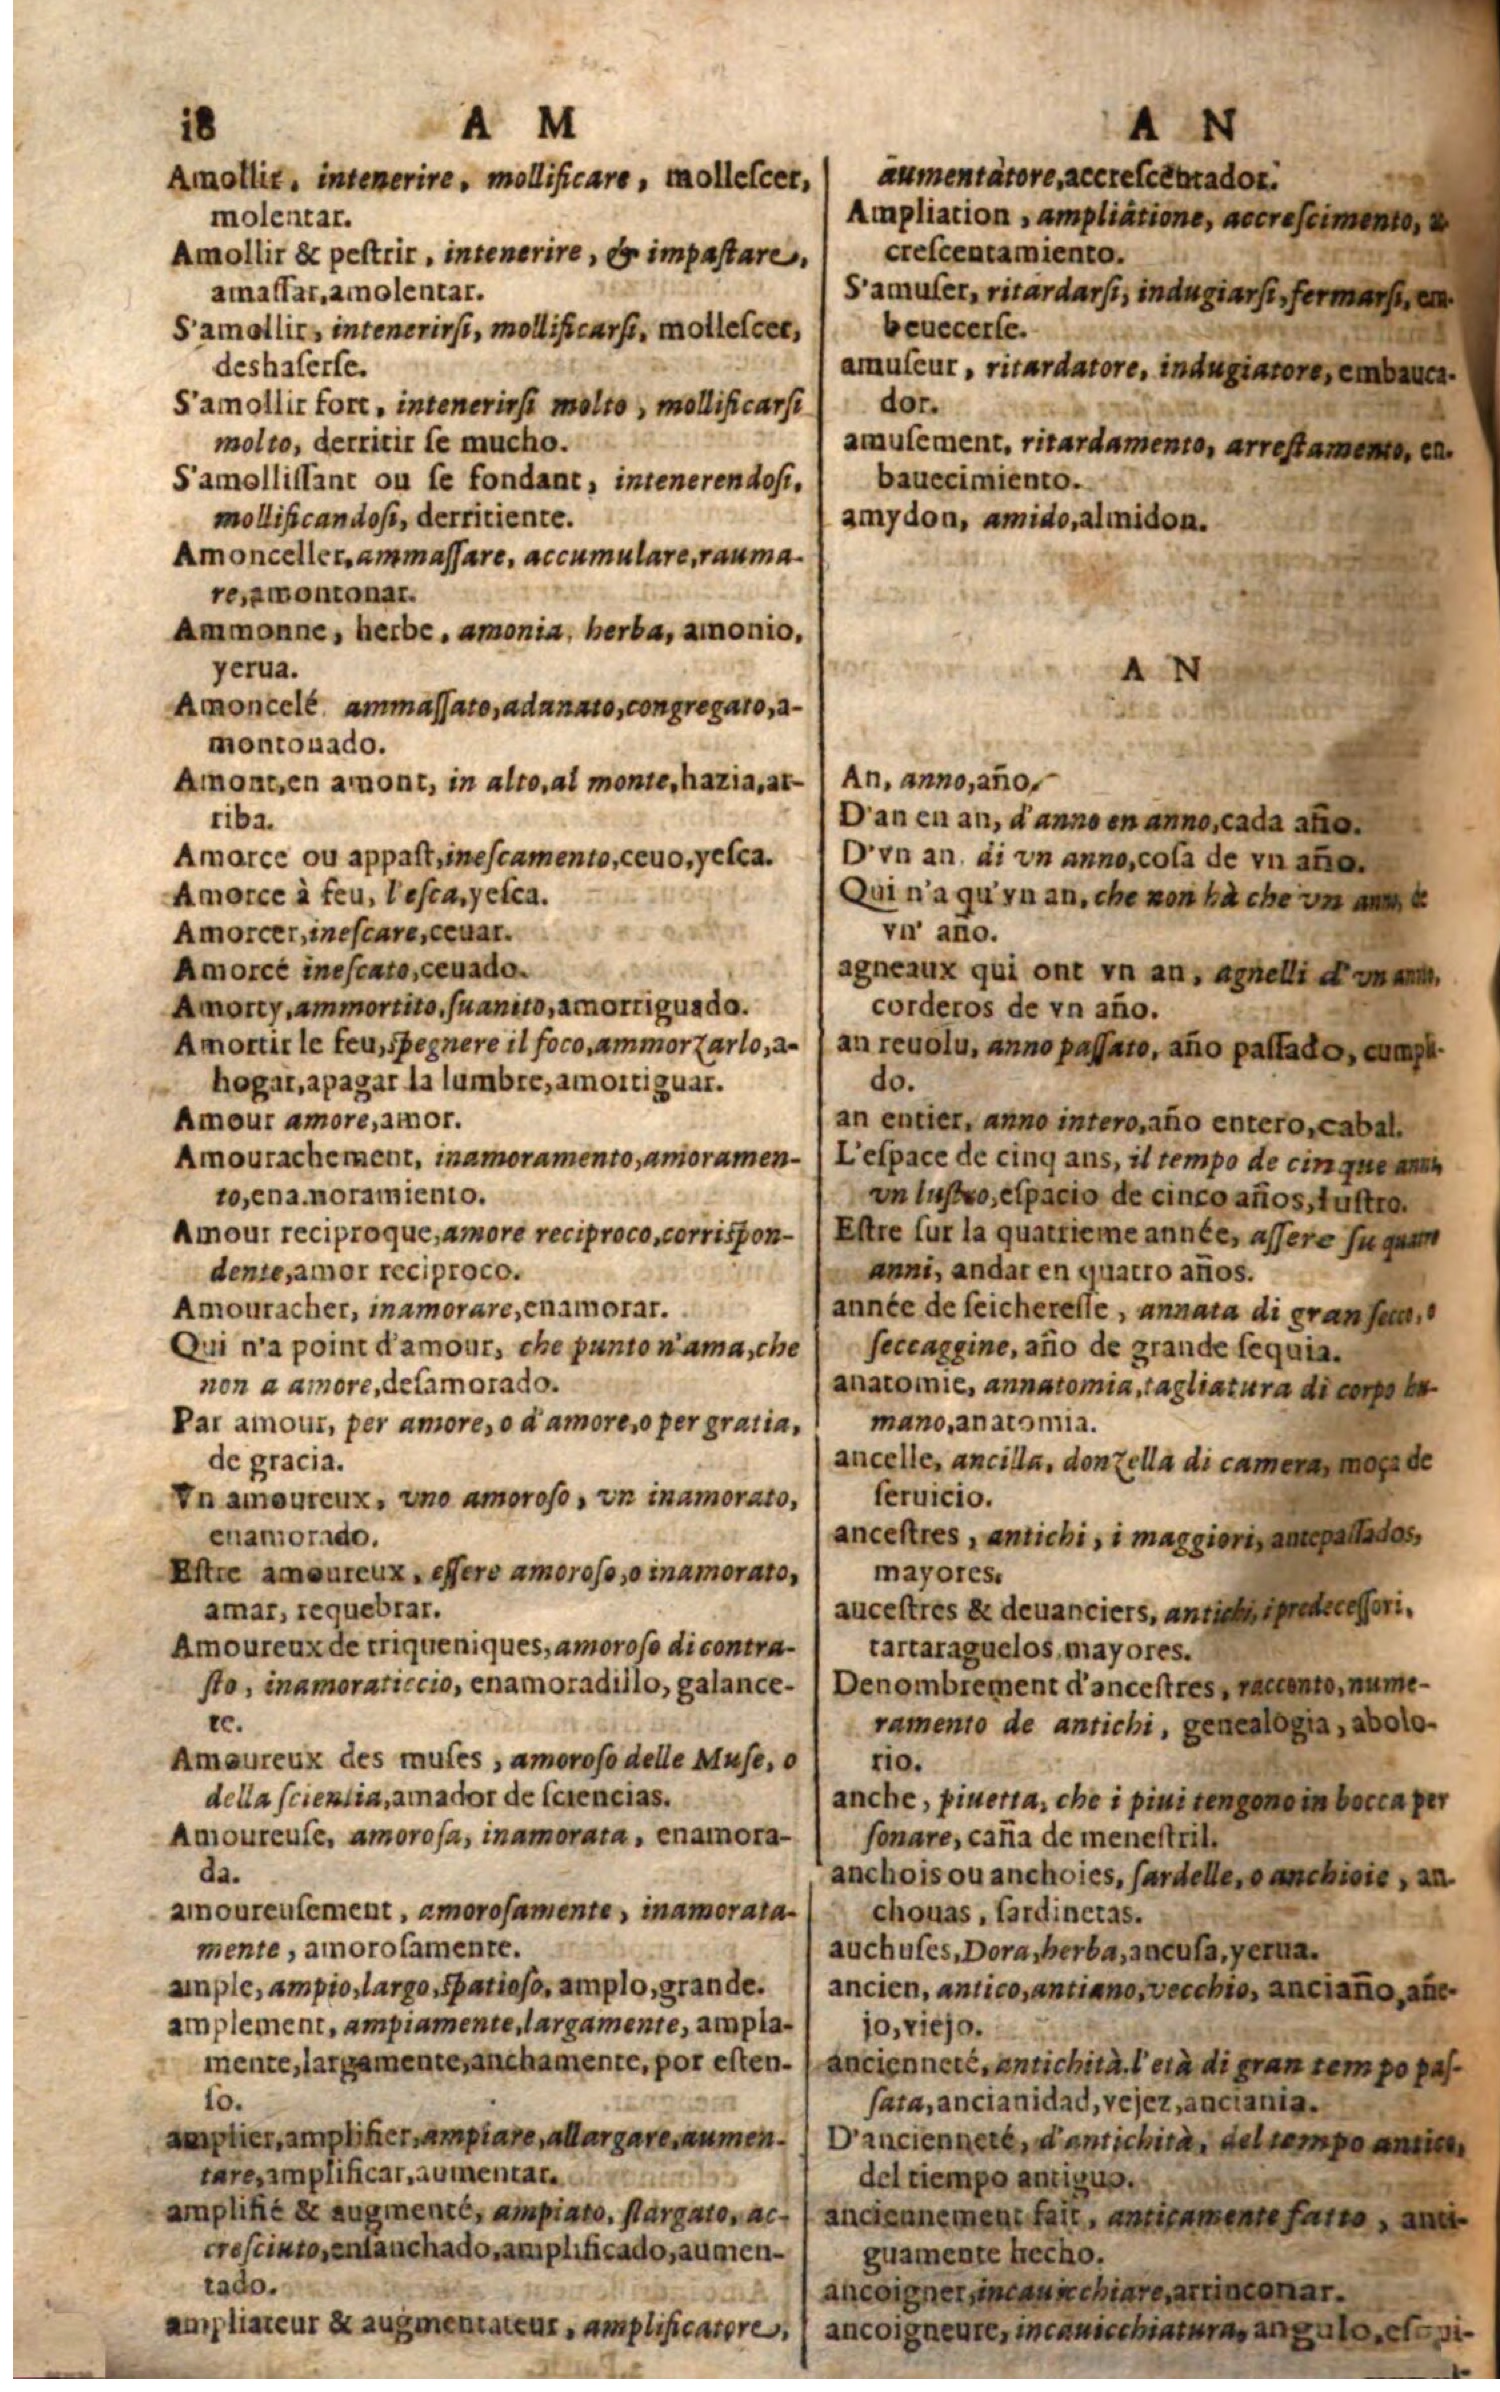 i8
A M
Amollir, intenerire, mollificare, molleſcer,
molentar.
Amollir & peſtrir, intenerire, & impaſtare,
amaſſar,amolentar.
S'amollir, intenerirſi, mollificarſi, molleſcer,
deshaſerſe.
S'amollir fort, intenerirſi molto, mollificarſi
molto, derritir ſe mucho.
S'amolliſſant ou ſe fondant, intenerendoſi,
mollificandoſi, derritiente.
Amonceller,ammaſſare, accumulare,rauma-
re,amontonar.
Ammonne, herbe, amonia, herba, amonio,
yerua.
Amoncelé ammaſſato,adunato,congregato,a-
montouado.
Amont,en amont, in alto,al monte,hazia,ar-
riba.
Amorce ou appaſt,ineſcamento,ceuo,yeſca.
Amorce à feu, l'eſca,yeſca.
Amorcer,ineſcare,ceuar.
Amorcé ineſcato,ceuado.
Amorty,ammortito,ſuanito,amortiguado.
Amortir le feu,ſpegnere il foco,ammorzarlo,a-
hogar,apagar la lumbre,amortiguar.
Amour amore,amor.
Amourachement, inamoramento,amoramen-
to,enamoramiento.
Amour reciproque,amore reciproco,corriſpon-
dente,amor reciproco.
Amouracher, inamorare,enamorar.
Qui n'a point d'amour, che punto n'ama,che
non a amore,deſamorado.
Par amour, per amore, o d'amore,o per gratia,
de gracia.
Vn amoureux, vno amoroſo, vn inamorato,
enamorado.
Eſtre amoureux, eſſere amoroſo,o inamorato,
amar, requebrar.
Amoureux de triqueniques,amoroſo di contra-
ſto, inamoraticcio, enamoradillo, galance-
te.
Amoureux des muſes, amoroſo delle Muſe, o
della ſcientia,amador de ſciencias.
Amoureuſe, amoroſa, inamorata, enamora-
da.
amoureuſement, amoroſamente, inamorata-
mente, amoroſamente.
ample, ampio,largo,ſpatioſo, amplo,grande.
amplement, ampiamente,largamente, ampla-
mente,largamente,anchamente, por eſten-
ſo.
amplier,amplifier,ampiare,allargare,aumen-
tare,amplificar,aumentar.
amplifié & augmenté, ampiato, ſlargato, ac-
creſciuto,enſanchado,amplificado,aumen-
tado.
ampliateur & augmentateur, amplificatore,
A N
aumentatore,accreſcentador.
Ampliation, ampliatione, accreſcimento, a-
creſcentamiento.
S'amuſer, ritardarſi, indugiarſi,fermarſi, em-
beuecerſe.
amuſeur, ritardatore, indugiatore, embauca-
dor.
amuſement, ritardamento, arreſtamento, en-
bauecimiento.
amydon, amido,almidon.
A N
An, anno,año,
D'an en an, d'anno en anno,cada año.
D'vn an, di vn anno,coſa de vn año.
Qui n'a qu'vn an, che non hà che vn anno, de
vn' año.
agneaux qui ont vn an, agnelli d'vn anno,
corderos de vn año.
an reuolu, anno paſſato, año paſſado, cumpli-
do.
an entier, anno intero,año entero,cabal.
L'eſpace de cinq ans, il tempo de cinque anni,
vn luſtro,eſpacio de cinco años,luſtro.
Eſtre ſur la quatrieme année, aſſere ſu quatro
anni, andar en quatro años.
année de ſeichereſſe, annata di gran ſecco, o
ſeccaggine, año de grande ſequia.
anatomie, annatomia,tagliatura di corpo hu-
mano,anatomia.
ancelle, ancilla, donzella di camera, moça de
ſeruicio.
anceſtres, antichi, i maggiori, antepaſſados,
mayores.
auceſtres & deuanciers, antichi, i predeceſſori,
tartaraguelos,mayores.
Denombrement d'anceſtres, racconto,nume-
ramento de antichi, genealogia, abolo-
rio.
anche, piuetta, che i piui tengono in bocca per
ſonare, caña de meneſtril.
anchois ou anchoies, ſardelle, o anchioie, an-
chouas, ſardinetas.
auchuſes,Dora,herba,ancuſa,yerua.
ancien, antico,antiano,vecchio, anciaño,añe-
jo,viejo.
ancienneté, antichità,l'età di gran tempo paſ-
ſata,ancianidad,vejez,anciania.
D'ancienneté, d'antichità, del tempo antico,
del tiempo antiguo.
anciennement fait, anticamente fatto, anti-
guamente hecho.
ancoigner,incauicchiare,arrinconar.
ancoigneure, incauicchiatura, angulo,eſqui-